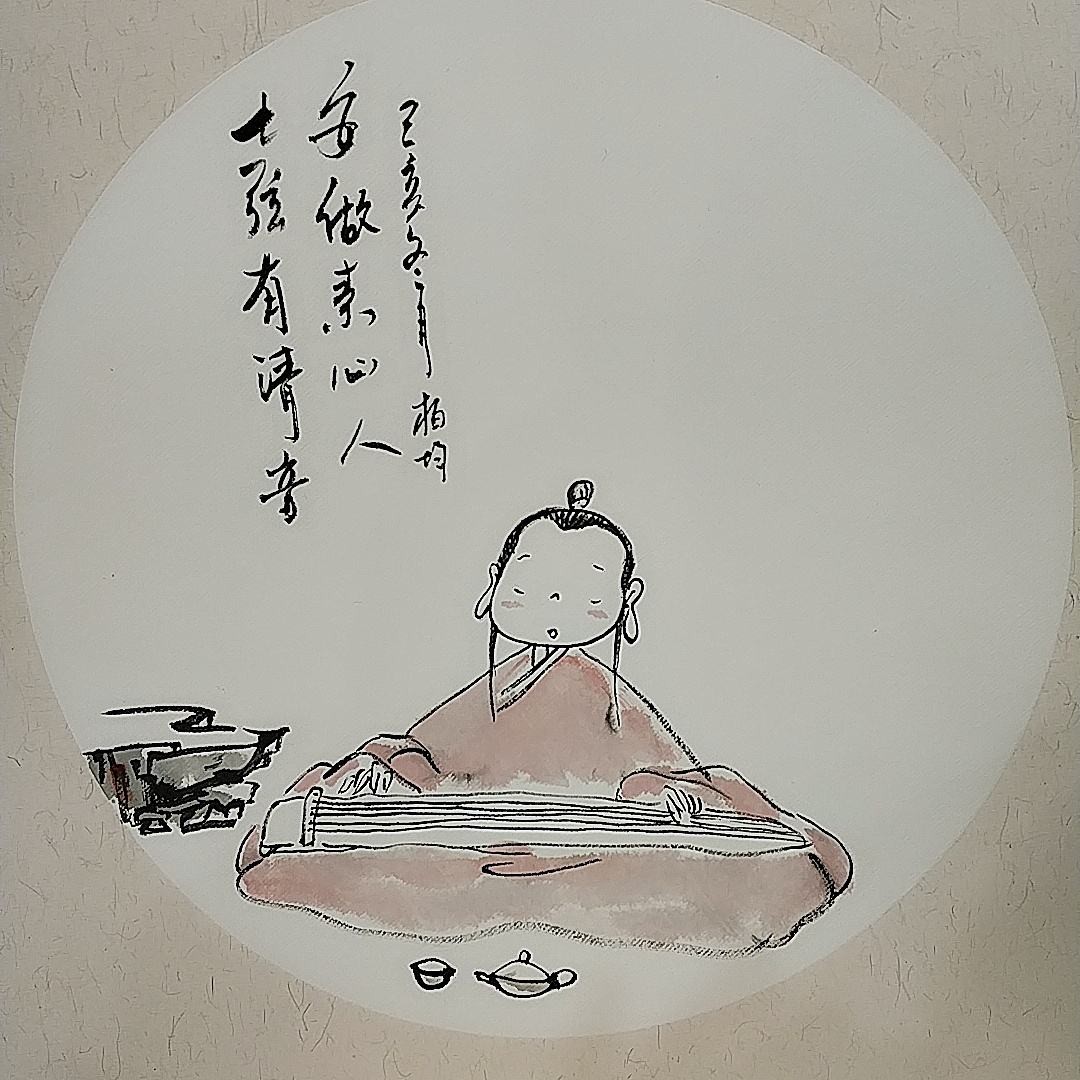 七弦有清音
安做素心人
己亥冬月 柏均